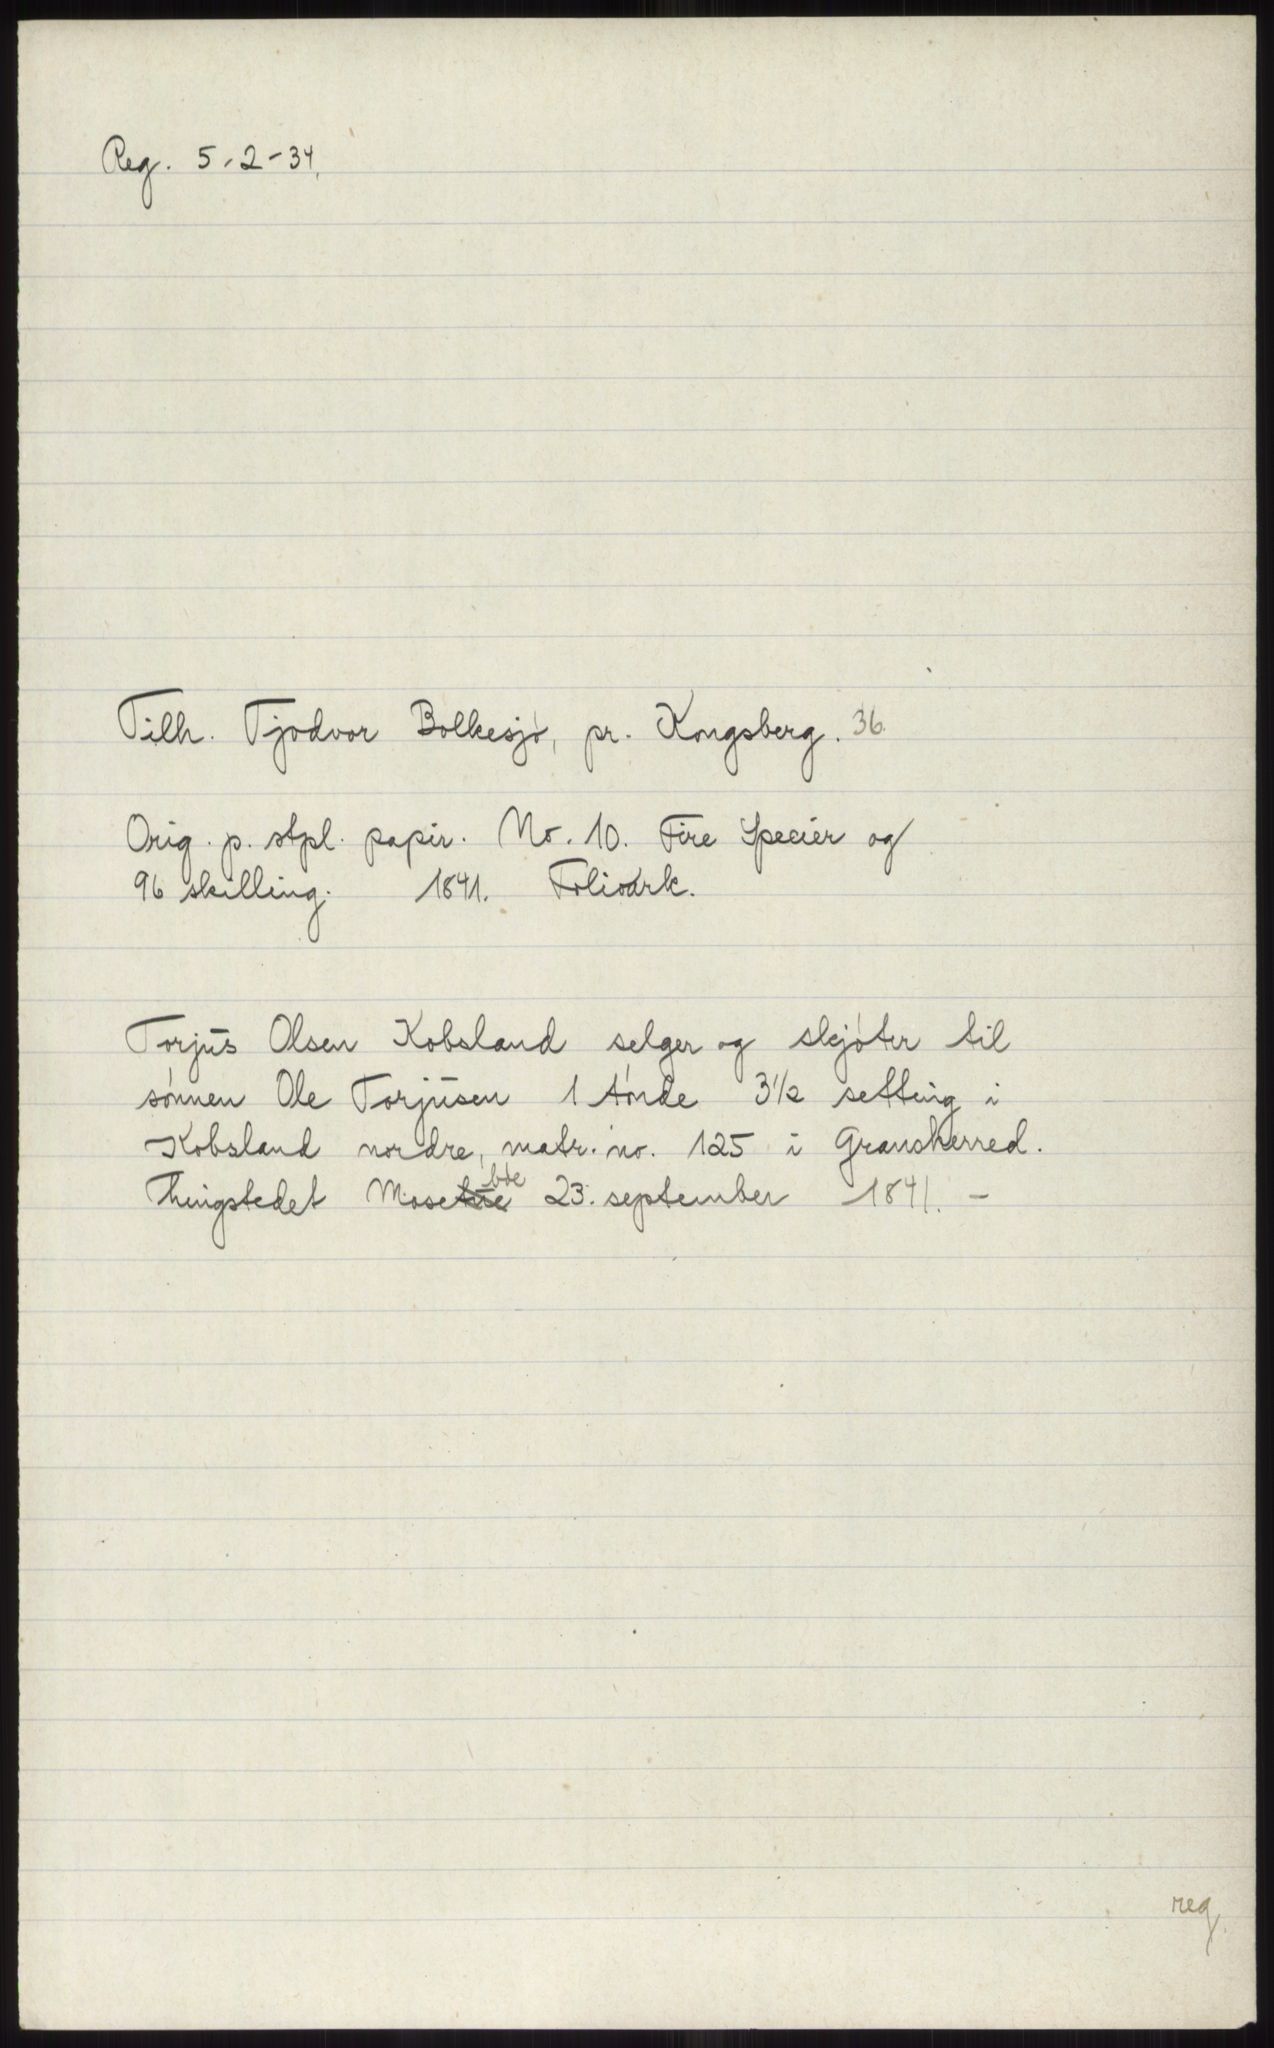 Reg. 5-2-34.
Tilh. Tjodvor Bolkesjø, pr. Kongsberg. 36.
Orig. p. stpl. papir. No. 10. Fire Specier og
96 skilling. 1841. Folioark.
Torjus Olsen Kobsland selger og skjøter til
sønnen Ole Torjusen 1 tønde 3½ setting i
Kobsland nordre, matr. no. 125 i Gransherred.
Thingstedet Mosebøe 23. september 1841. -
reg.